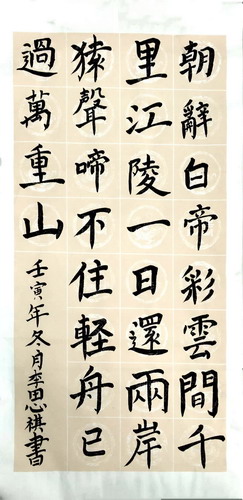 朝辭白帝彩雲間千
里江陵一日還兩岸
猿聲啼不住輕舟已
過萬重山
壬寅年冬月李思祺書